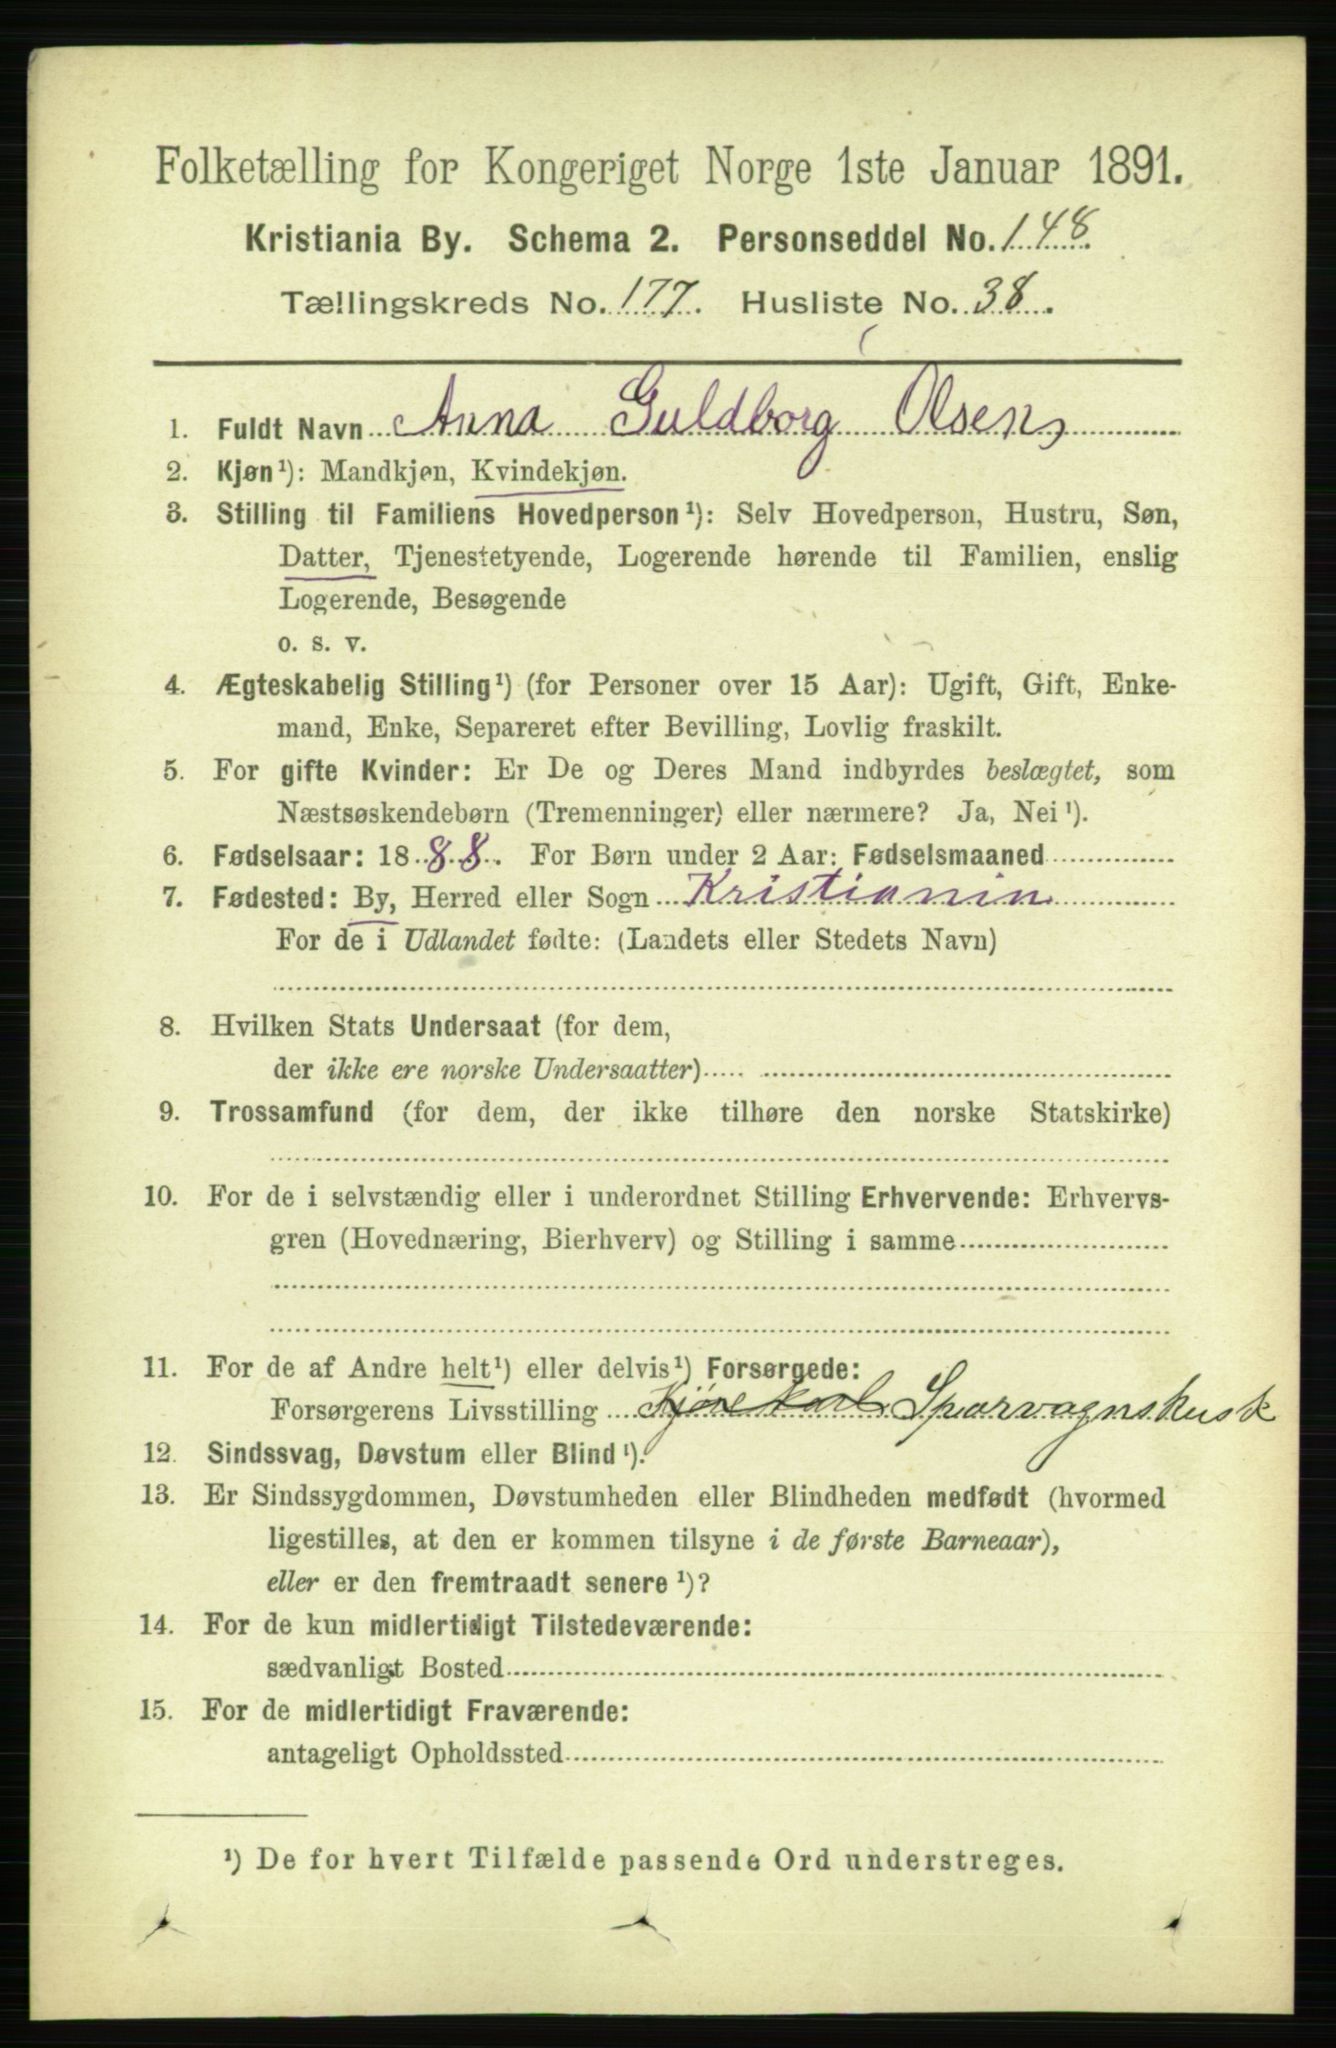 Folketælling for Kongeriget Norge 1ste Januar 1891.
Kristiania By. Schema 2. Personseddel No. 148
Tællingskreds No. 177. Husliste No. 38.
1. Fuldt Navn Anna Guldborg Olsen
2. Kjøn¹): Mandkjøn, Kvindekjøn.
3. Stilling til Familiens Hovedperson¹): Selv Hovedperson, Hustru, Søn,
Datter, Tjenestetyende, Logerende hørende til Familien, enslig
Logerende, Besøgende
o. s. v.
4. Ægteskabelig Stilling¹) (for Personer over 15 Aar): Ugift, Gift, Enke-
mand, Enke, Separeret efter Bevilling, Lovlig fraskilt.
5. For gifte Kvinder: Er De og Deres Mand indbyrdes beslægtet, som
Næstsøskendebørn (Tremenninger) eller nærmere? Ja, Nei¹).
6. Fødselsaar: 1888. For Børn under 2 Aar: Fødselsmaaned
7. Fødested: By, Herred eller Sogn Kristianin
For de i Udlandet fødte: (Landets eller Stedets Navn)
8. Hvilken Stats Undersaat (for dem,
der ikke ere norske Undersaatter)
9. Trossamfund (for dem, der ikke tilhøre den norske Statskirke)
10. For de i selvstændig eller i underordnet Stilling Erhvervende: Erhvervs-
gren (Hovednæring, Bierhverv) og Stilling i samme
11. For de af Andre helt¹) eller delvis¹) Forsørgede:
Forsørgerens Livsstilling Kjørekarl Sporvognskusk
12. Sindssvag, Døvstum eller Blind¹).
13. Er Sindssygdommen, Døvstumheden eller Blindheden medfødt (hvormed
ligestilles, at den er kommen tilsyne i de første Barneaar),
eller er den fremtraadt senere¹)?
14. For de kun midlertidigt Tilstedeværende:
sædvanligt Bosted
15. For de midlertidigt Fraværende:
antageligt Opholdssted
¹) De for hvert Tilfælde passende Ord understreges.